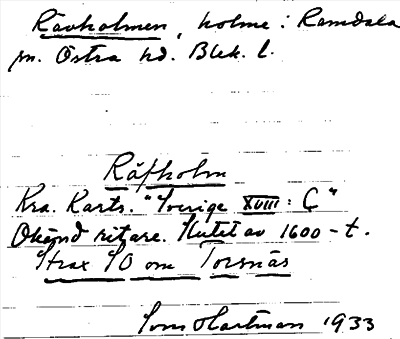 Rävholmen, holme i Ramdala
sn. Östra hd. Blek. l.
Räfholm
Kra. Kart. "Sverige XVIII: C"
Okänd ritare. Slutet av 1600-t.
Strax SO om Torsnäs
Hartman 1933